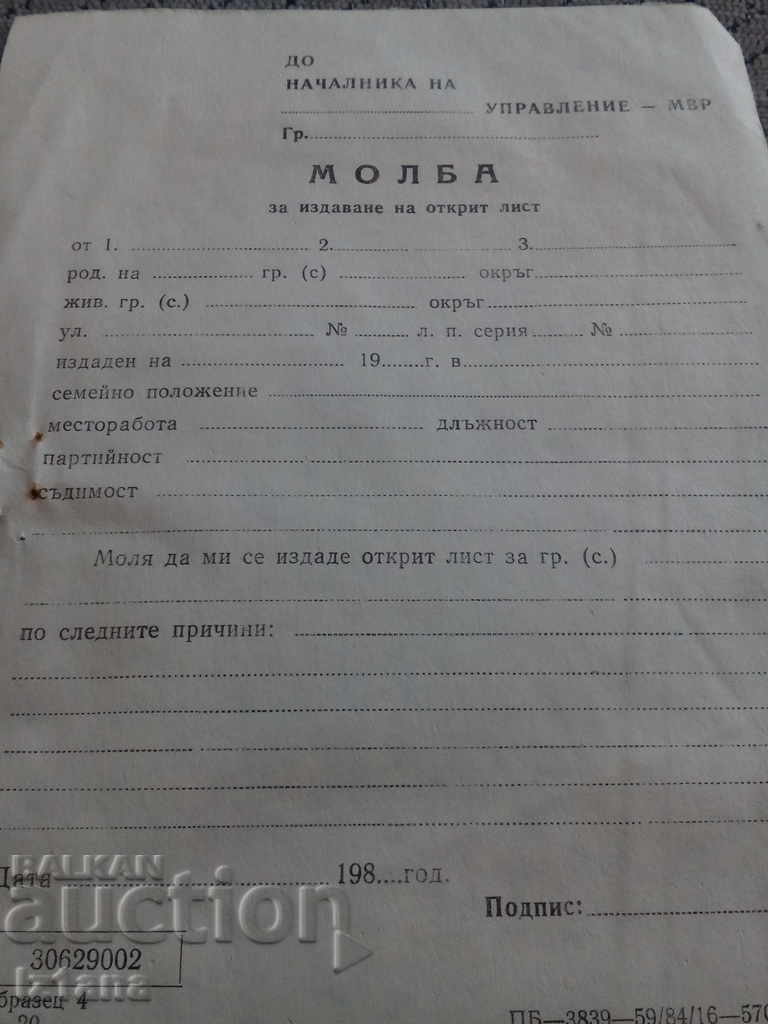 ДО
НАЧАЛНИКА НА
УПРАВЛЕНИЕ — МВР
Гр.
МОЛБА
за издаване на открит лист
от 1. 2. 3.
род. на гр. (с) окръг
жив. гр. (с.) окръг
ул. № л. п. серия № 
издаден на 19 г. в
семейно положение
месторабота длъжност
партийност
съдимост
Моля да ми се издаде открит лист за гр. (с.)
по следните причини:
Дата 198 год.
Подпис:
BALKAN
auction
30629002
iz1ana
бразец 4
20
ПБ—3839—59/84/16—570